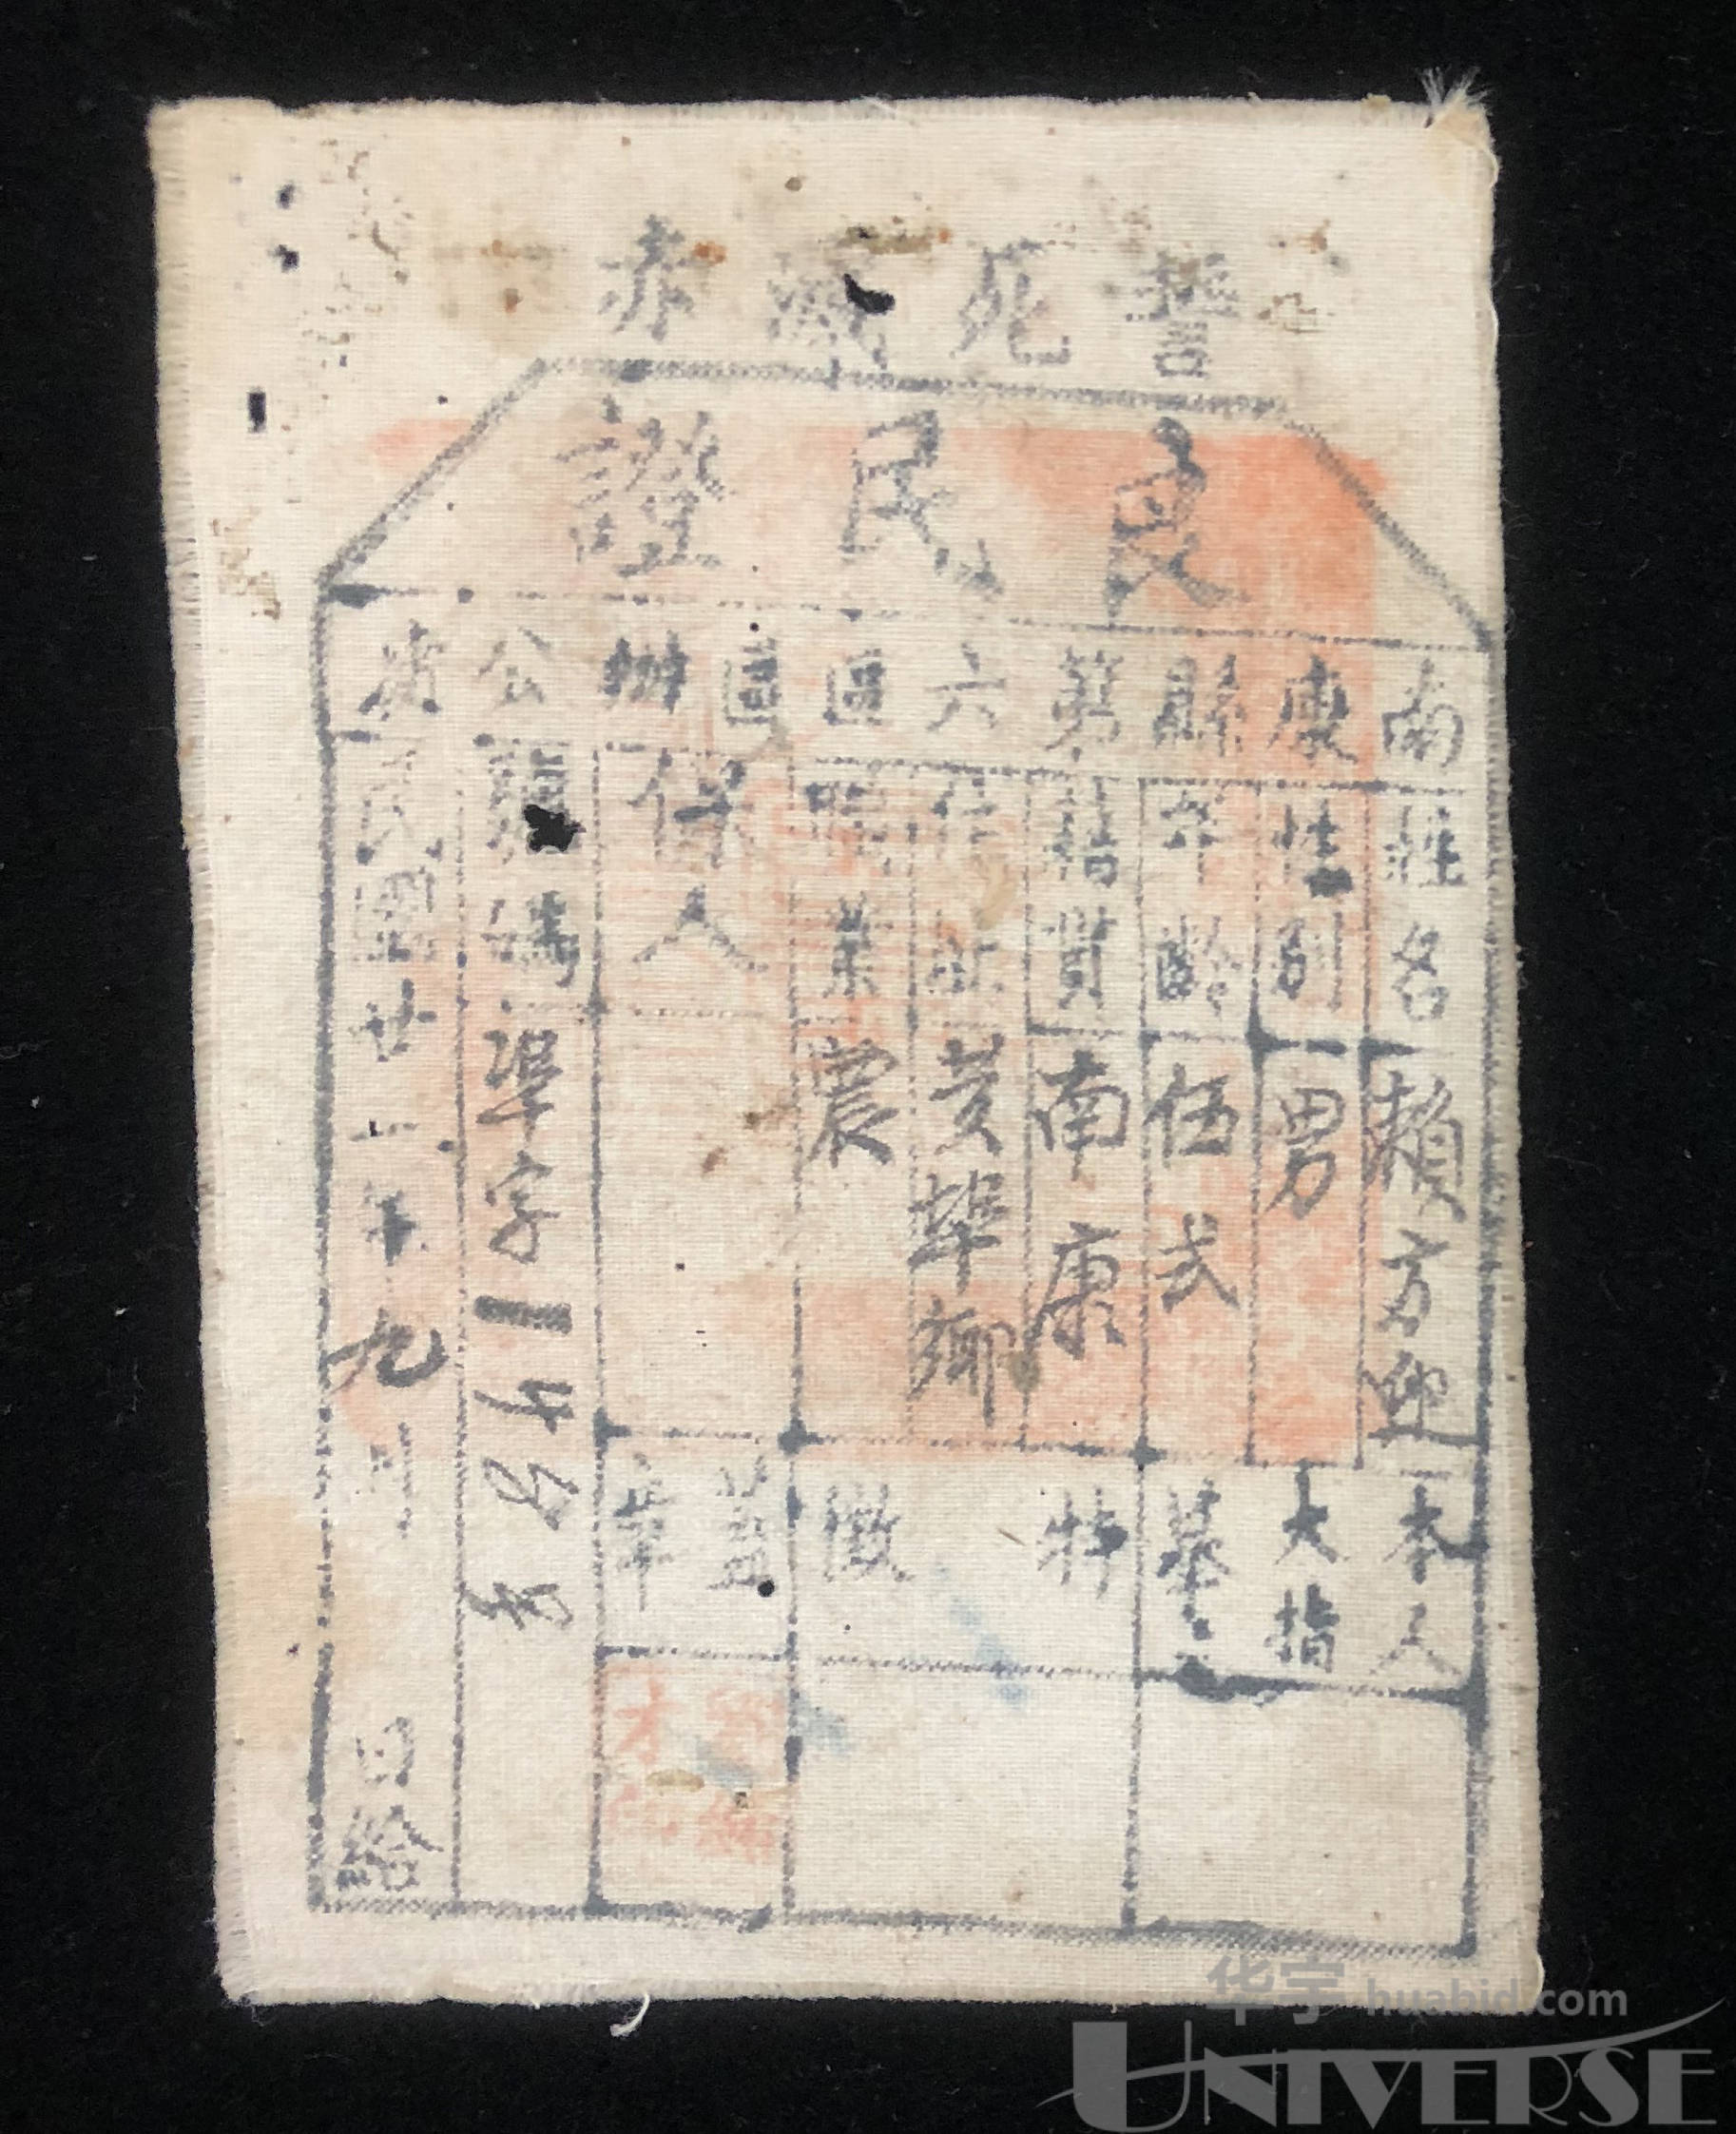 誓死滅赤
良民證
南康縣第六區區辦公處
姓名 賴方迎
性別 男
年齡 伍弍
籍貫 南康
住址
職業 農
保人
號碼 準字
民國廿一年九月 日給
本人大指摹
特徵
蓋章
华宇 huabid.com
UNIVERSE